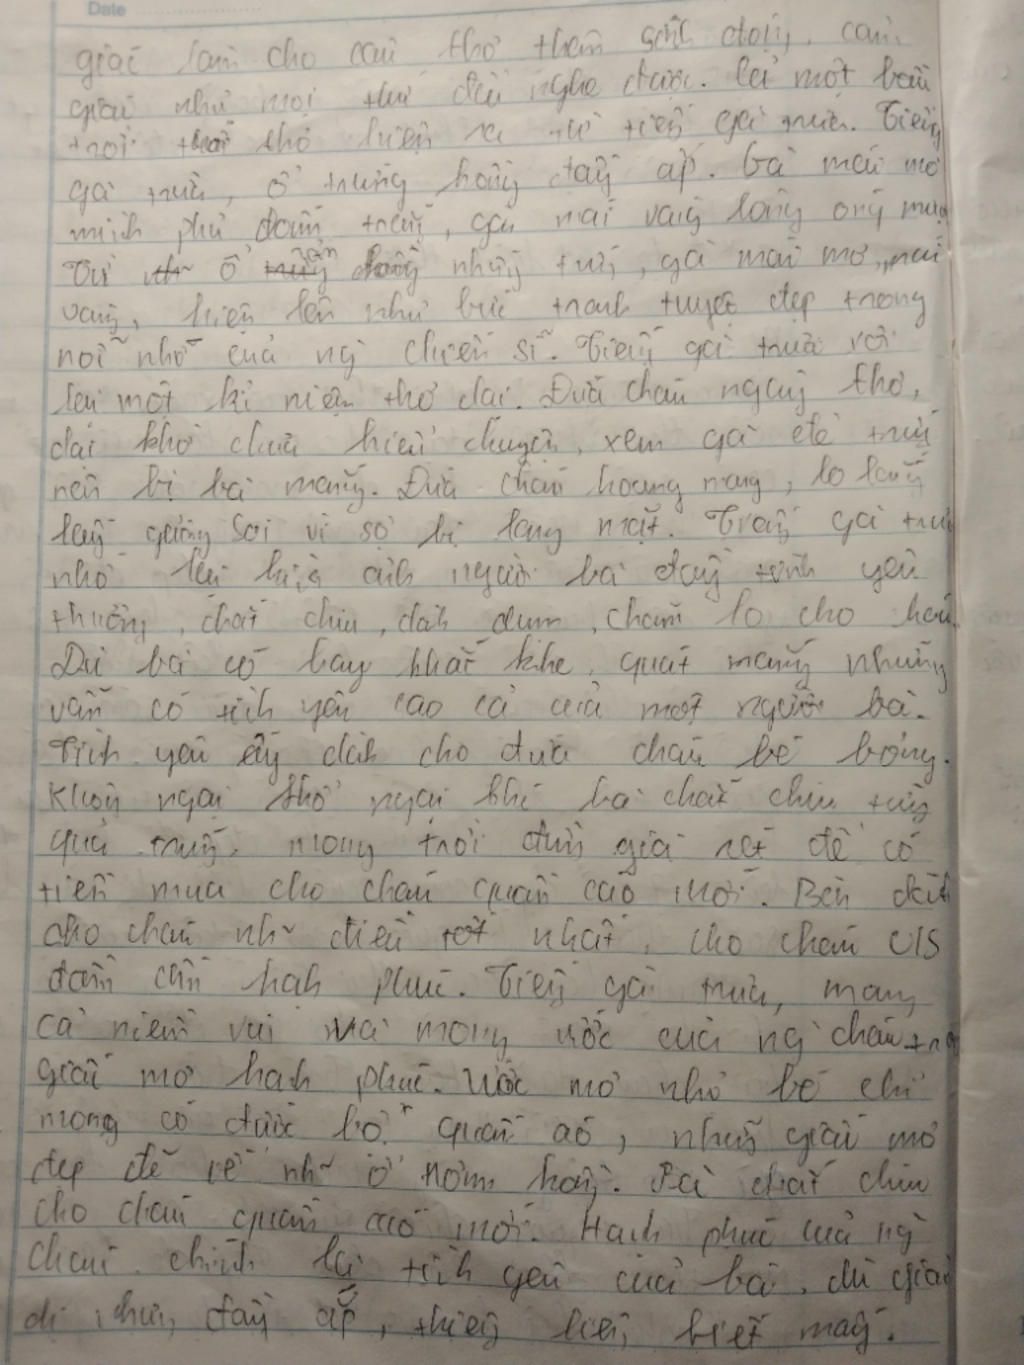 Date
giác làm cho câu thơ thêm sinh động, cảm
giác như mọi thứ đều nghe được. Cả một bầu
trời thơ hiện ra từ tiếng gà trưa. Tiếng
gà trưa, ổ trứng hồng đầy ắp. Gà mái mơ
mình phủ đốm trắng, gà mái vàng lông óng màu
Từ ổ những trứng, gà mái mơ, mái
vàng, hiện lên như bức tranh tuyệt đẹp trong
nỗi nhớ của ng chiến sĩ. Tiếng gà trưa với
lại một kỉ niệm thơ dại. Đứa cháu ngây thơ,
dại khờ chưa hiểu chuyện, xem gà đẻ trứng
nên bị bà mắng. Đứa cháu hoang mang, lo lắng
lấy gương soi vì sợ bị lang mặt. Trong gà trưa
nhớ lên hình ảnh người bà đầy tình yêu
thương, chắt chiu, dành dụm, chăm lo cho cháu.
Dù bà có hay khắt khe, quát mắng nhưng
vẫn có tình yêu cao cả của một người bà.
Tình yêu ấy dành cho đứa cháu bé bỏng.
Không ngại khó ngại khổ bà chắt chiu từng
quả trứng. mong trời đừng giá rét để có
tiền mua cho cháu quần áo mới. Bà dành
cho cháu nh~ điều tốt nhất, cho cháu c/s
đầm ấm hạnh phúc. Tiếng gà trưa, mang
cả niềm vui và mong ước của ng cháu trong
giấc mơ hạnh phúc. Ước mơ nhỏ bé chỉ
mong có được bộ quần áo, những giấc mơ
đẹp đẽ về nh~ ổ trứng hồng. Bà chắt chiu
cho cháu quần áo mới. Hạnh phúc của ng
cháu chính là tình yêu của bà, dù giản
dị nhưng đầy ắp, thiêng liêng biết mấy.